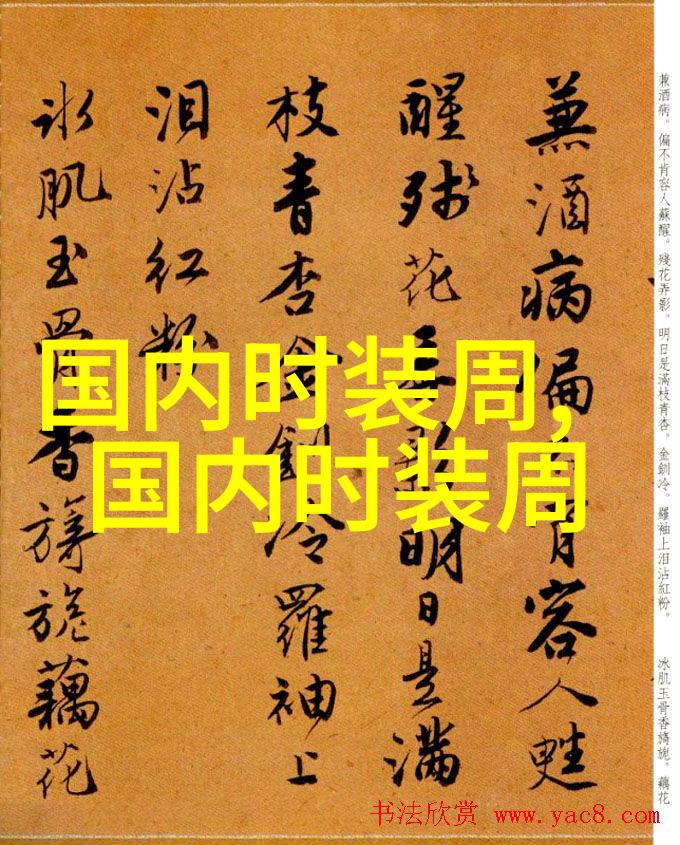 兼酒病偏不肯容人甦
醒殘花弄影明日是滿
枝青杏金釧冷羅袖上
泪沾紅粉
冰肌玉骨香旖旎藕花
国内时装周,
国内时装周
兼酒病。偏不肯容人蘇醒。殘花弄影。明日是滿枝青杏。金釧冷。羅袖上泪沾紅粉。
冰肌玉骨香旖旎。藕花
书法欣赏 www.yac8.com